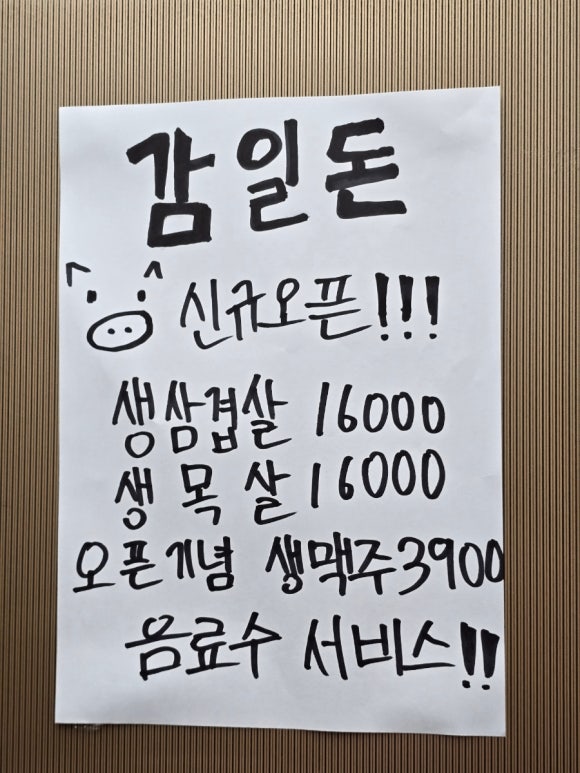 감일돈
신규오픈!!!
생삼겹살 16000
생목살 16000
오픈기념 생맥주3900
음료수 서비스!!